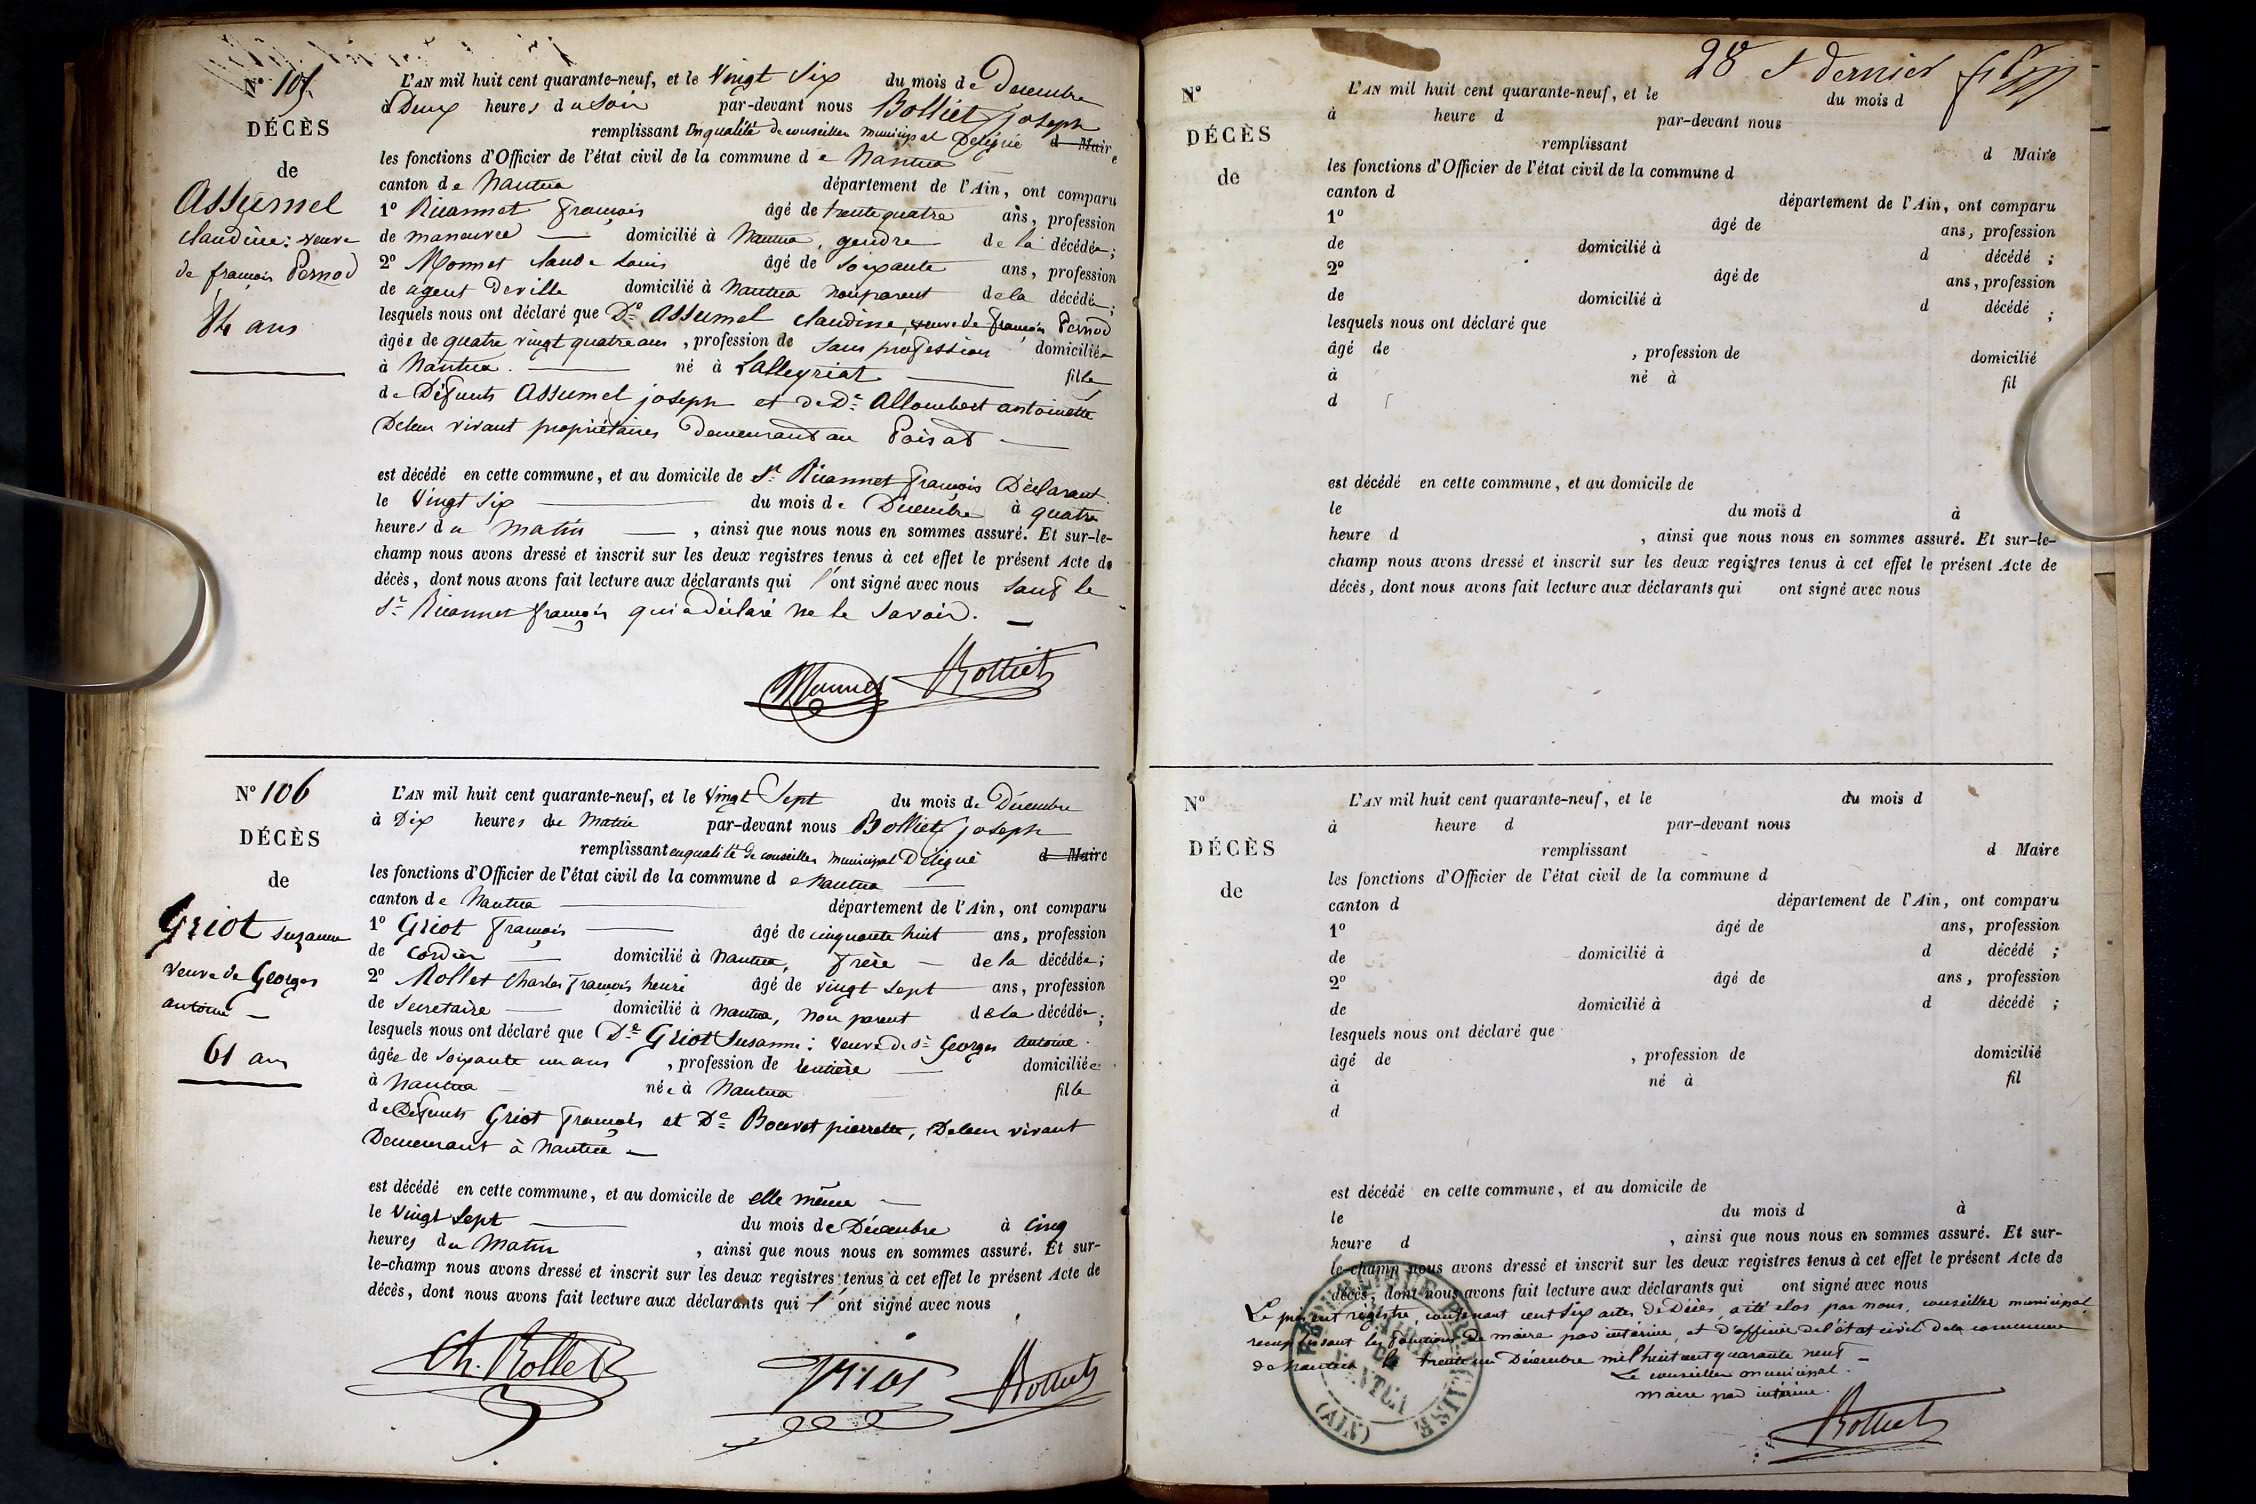 N° 105
DÉCÈS
de
Assumel
claudine: veuve
de françois Pernod
84 ans
L'AN mil huit cent quarante-neuf, et le Vingt Six du mois de Decembre
à Deux heures du Soir par-devant nous Bolliet joseph
remplissant En qualité de conseiller municipal Délégué d Maire
les fonctions d'Officier de l'état civil de la commune de Nantua
canton de Nantua département de l'Ain, ont comparu
1° Ruannet françois âgé de trente quatre ans, profession
de manoeuvre domicilié à Nantua, gendre de la décédée;
2° Monnet claude Louis âgé de soixante ans, profession
de agent de ville domicilié à Nantua non parent de la décédée;
lesquels nous ont déclaré que De Assumel claudine, veuve de françois Pernod
âgée de quatre vingt quatre ans, profession de sans profession domiciliée
à Nantua. né à Lalleyriat fille
de Défunts Assumel joseph et de De Allombert antoinette
De leur vivant propriétaires demeurant au Poisat
est décédé en cette commune, et au domicile de Sr Ruannet françois Déclarant
le Vingt six du mois de Décembre à quatre
heures du matin, ainsi que nous nous en sommes assuré. Et sur-le-
champ nous avons dressé et inscrit sur les deux registres tenus à cet effet le présent Acte de
décès, dont nous avons fait lecture aux déclarants qui l'ont signé avec nous sauf le
Sr Ruannet françois qui a déclaré ne le savoir.
Monnet Bolliet
N° 106
DÉCÈS
de
Griot suzanne
veuve de Georges
antoine
61 ans
L'AN mil huit cent quarante-neuf, et le Vingt Sept du mois de Décembre
à Dix heures du Matin par-devant nous Bolliet joseph
remplissant en qualité de conseiller municipal Délégué d Maire
les fonctions d'Officier de l'état civil de la commune de Nantua
canton de Nantua département de l'Ain, ont comparu
1° Griot françois âgé de cinquante huit ans, profession
de Cordier domicilié à Nantua, frère de la décédée;
2° Rollet Charles françois henri âgé de vingt sept ans, profession
de Secretaire domicilié à Nantua, non parent de la décédée;
lesquels nous ont déclaré que De Griot Susanne: veuve de Sr Georges Antoine.
âgée de soixante un ans, profession de rentière domiciliée
à Nantua née à Nantua fille
de Défunts Griot françois et De Bouvet pierrette, De leur vivant
Demeurant à Nantua
est décédé en cette commune, et au domicile de elle même
le Vingt sept du mois de Décembre à cinq
heures du Matin, ainsi que nous nous en sommes assuré. Et sur-
le-champ nous avons dressé et inscrit sur les deux registres tenus à cet effet le présent Acte de
décès, dont nous avons fait lecture aux déclarants qui l'ont signé avec nous
Ch. Rollet Griot Bolliet
28 et dernier
N°
DÉCÈS
de
L'AN mil huit cent quarante-neuf, et le du mois d
à heure d par-devant nous
remplissant d Maire
les fonctions d'Officier de l'état civil de la commune d
canton d département de l'Ain, ont comparu
1° âgé de ans, profession
de domicilié à d décédé ;
2° âgé de ans, profession
de domicilié à d décédé ;
lesquels nous ont déclaré que
âgé de , profession de domicilié
à né à fil
d
est décédé en cette commune, et au domicile de
le du mois d à
heure d , ainsi que nous nous en sommes assuré. Et sur-le-
champ nous avons dressé et inscrit sur les deux registres tenus à cet effet le présent Acte de
décès, dont nous avons fait lecture aux déclarants qui ont signé avec nous
N°
DÉCÈS
de
L'AN mil huit cent quarante-neuf, et le du mois d
à heure d par-devant nous
remplissant d Maire
les fonctions d'Officier de l'état civil de la commune d
canton d département de l'Ain, ont comparu
1° âgé de ans, profession
de domicilié à d décédé ;
2° âgé de ans, profession
de domicilié à d décédé ;
lesquels nous ont déclaré que
âgé de , profession de domicilié
à né à fil
d
est décédé en cette commune, et au domicile de
le du mois d à
heure d , ainsi que nous nous en sommes assuré. Et sur-
le-champ nous avons dressé et inscrit sur les deux registres tenus à cet effet le présent Acte de
décès, dont nous avons fait lecture aux déclarants qui ont signé avec nous
Le présent régistre, contenant cent six actes de Décès, a été clos par nous, conseiller municipal,
remplissant les fonctions de maire par intérim, et d'officier de l'état civil de la commune
de Nantua le trente un Décembre mil huit cent quarante neuf
Le conseiller municipal.
maire par intérim.
Bolliet
RÉPUBLIQUE FRANÇAISE
MAIRIE DE NANTUA
(AIN)